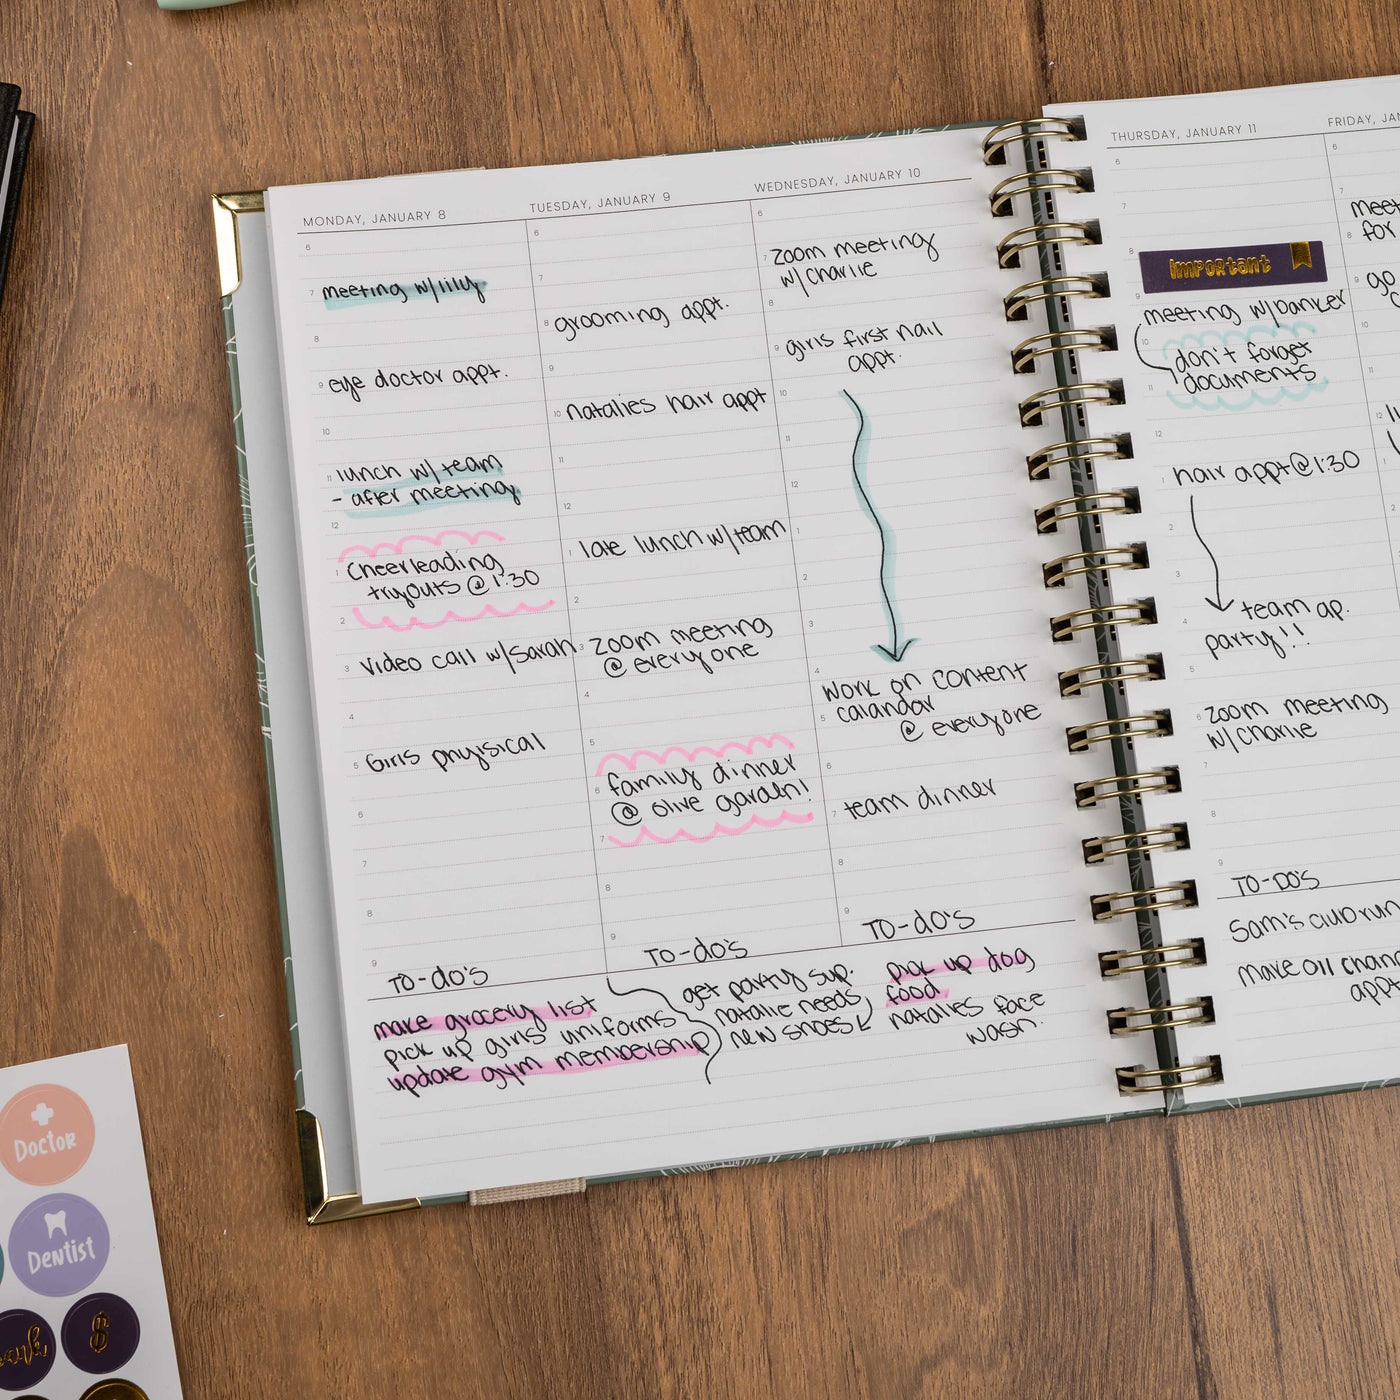 MONDAY, JANUARY 8
6
7 meeting w/lily
8
9 eye doctor appt.
10
11 lunch w/ team
- after meeting
12
1 Cheerleading
tryouts @ 1:30
2
3 Video call w/Sarah
4
5 Girls phyisical
6
7
8
9
TO-do's
make grocery list
pick up girls uniforms
update gym membership
TUESDAY, JANUARY 9
6
7
8 grooming appt.
9
10 natalies hair appt
11
12
1 late lunch w/team
2
3 Zoom meeting
@ everyone
4
5
6 family dinner
@ olive garden!
7
8
9
TO-do's
get party sup.
natalie needs
new shoes
WEDNESDAY, JANUARY 10
6
7 zoom meeting
w/ Charlie
8
9 girls first nail
appt.
10
11
12
1
2
3
4
Work on content
5 calandar
@ everyone
6
7 team dinner
8
9
TO-do's
pick up dog
food
natalies face
wash.
THURSDAY, JANUARY 11
6
7
8
Important
9
meeting w/banker
10
don't forget
11 documents
12
1 hair appt@1:30
2
3
4 team ap.
party!!
5
6 zoom meeting
w/ Charlie
7
8
9
TO-DO'S
Sam's club run
make oil
appt
FRIDAY,
6
7
meet
8 for
9 go
10
11
12
1
2
Doctor
Dentist
$